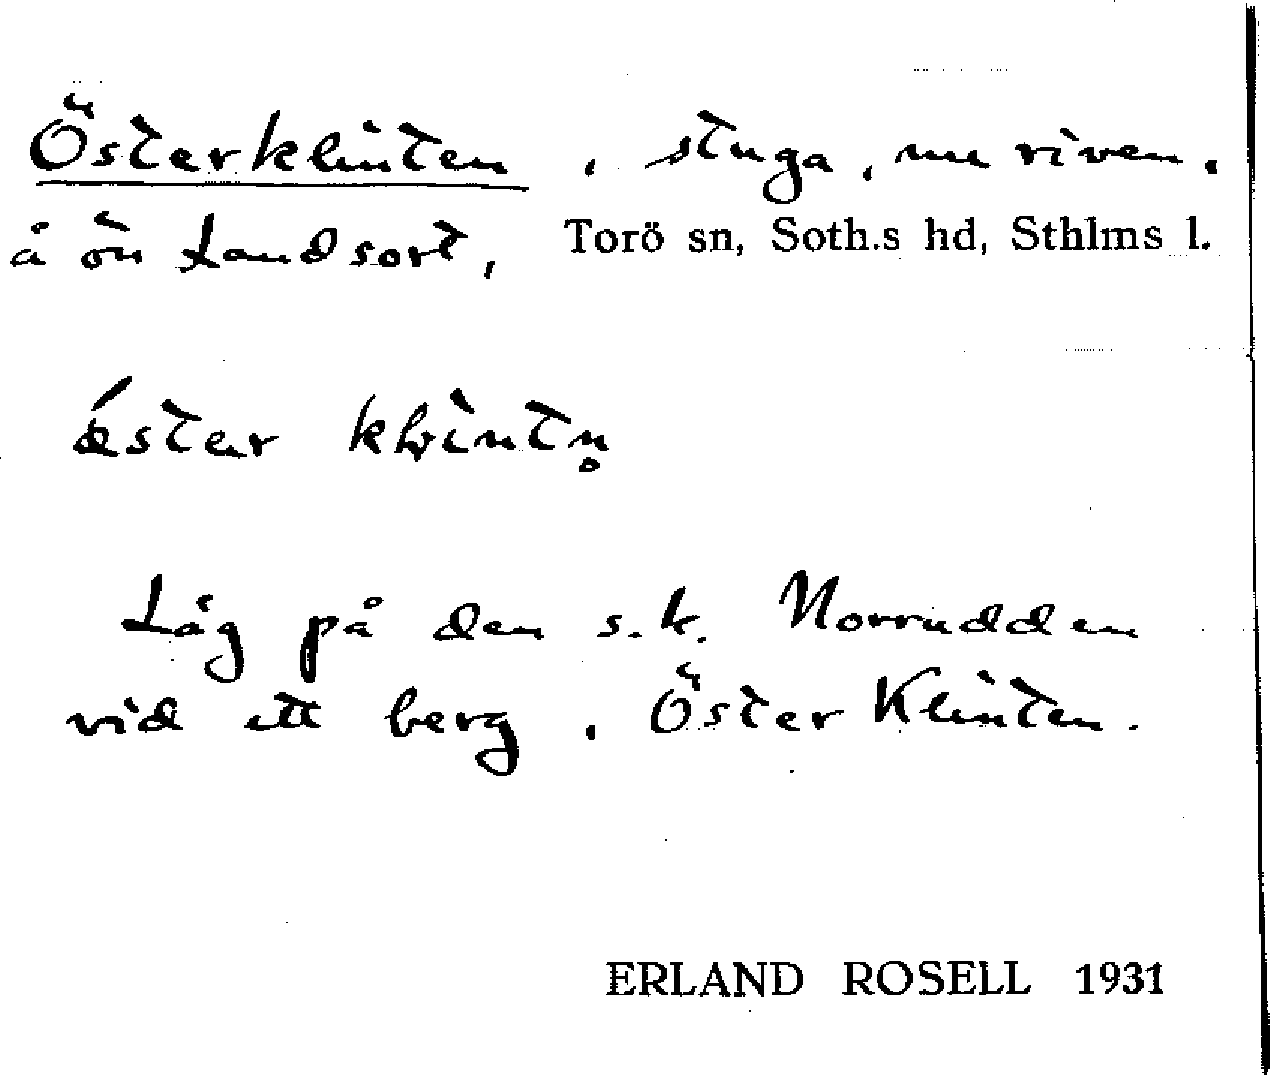 Österklinten, stuga, nu riven.
å ön Landsort, Torö sn, Soth.s hd, Sthlms l.
Låg på den s.k. Norrudden
vid ett berg, Öster Klinten.
ERLAND ROSELL 1931